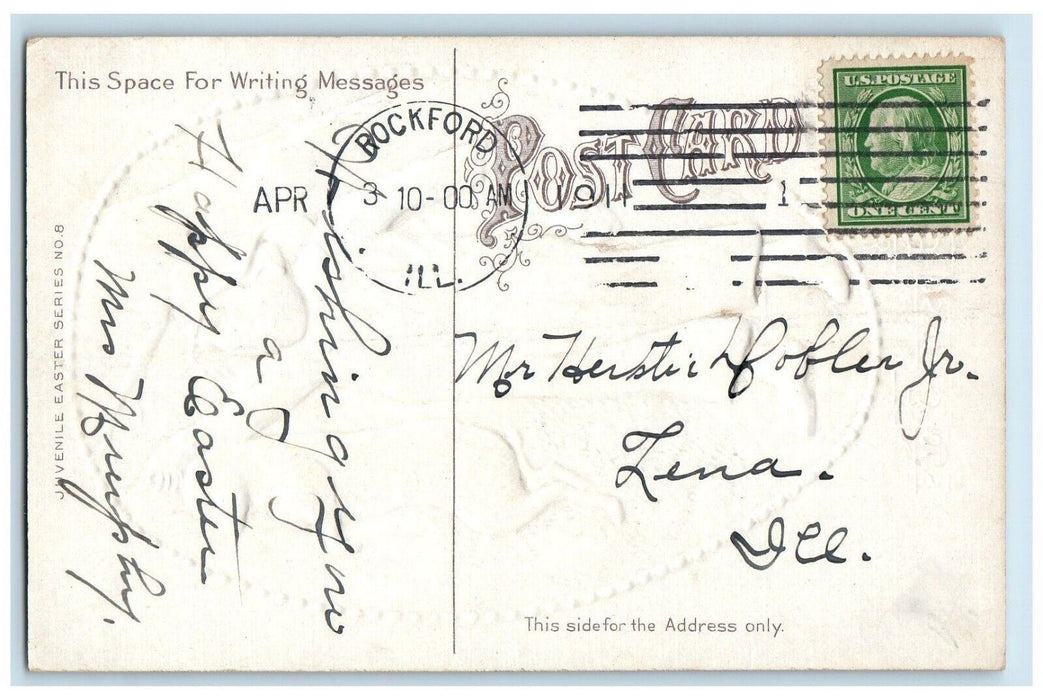 This Space For Writing Messages
POST CARD
U.S. POSTAGE
ONE CENT
ROCKFORD
APR 3 10-00 AM 1911
ILL.
1
Wishing You
a
Happy Easter
Mrs Murphy.
Mr Kerstie Dobler Jr.
Lena.
Ill.
JUVENILE EASTER SERIES NO. 8
This side for the Address only.